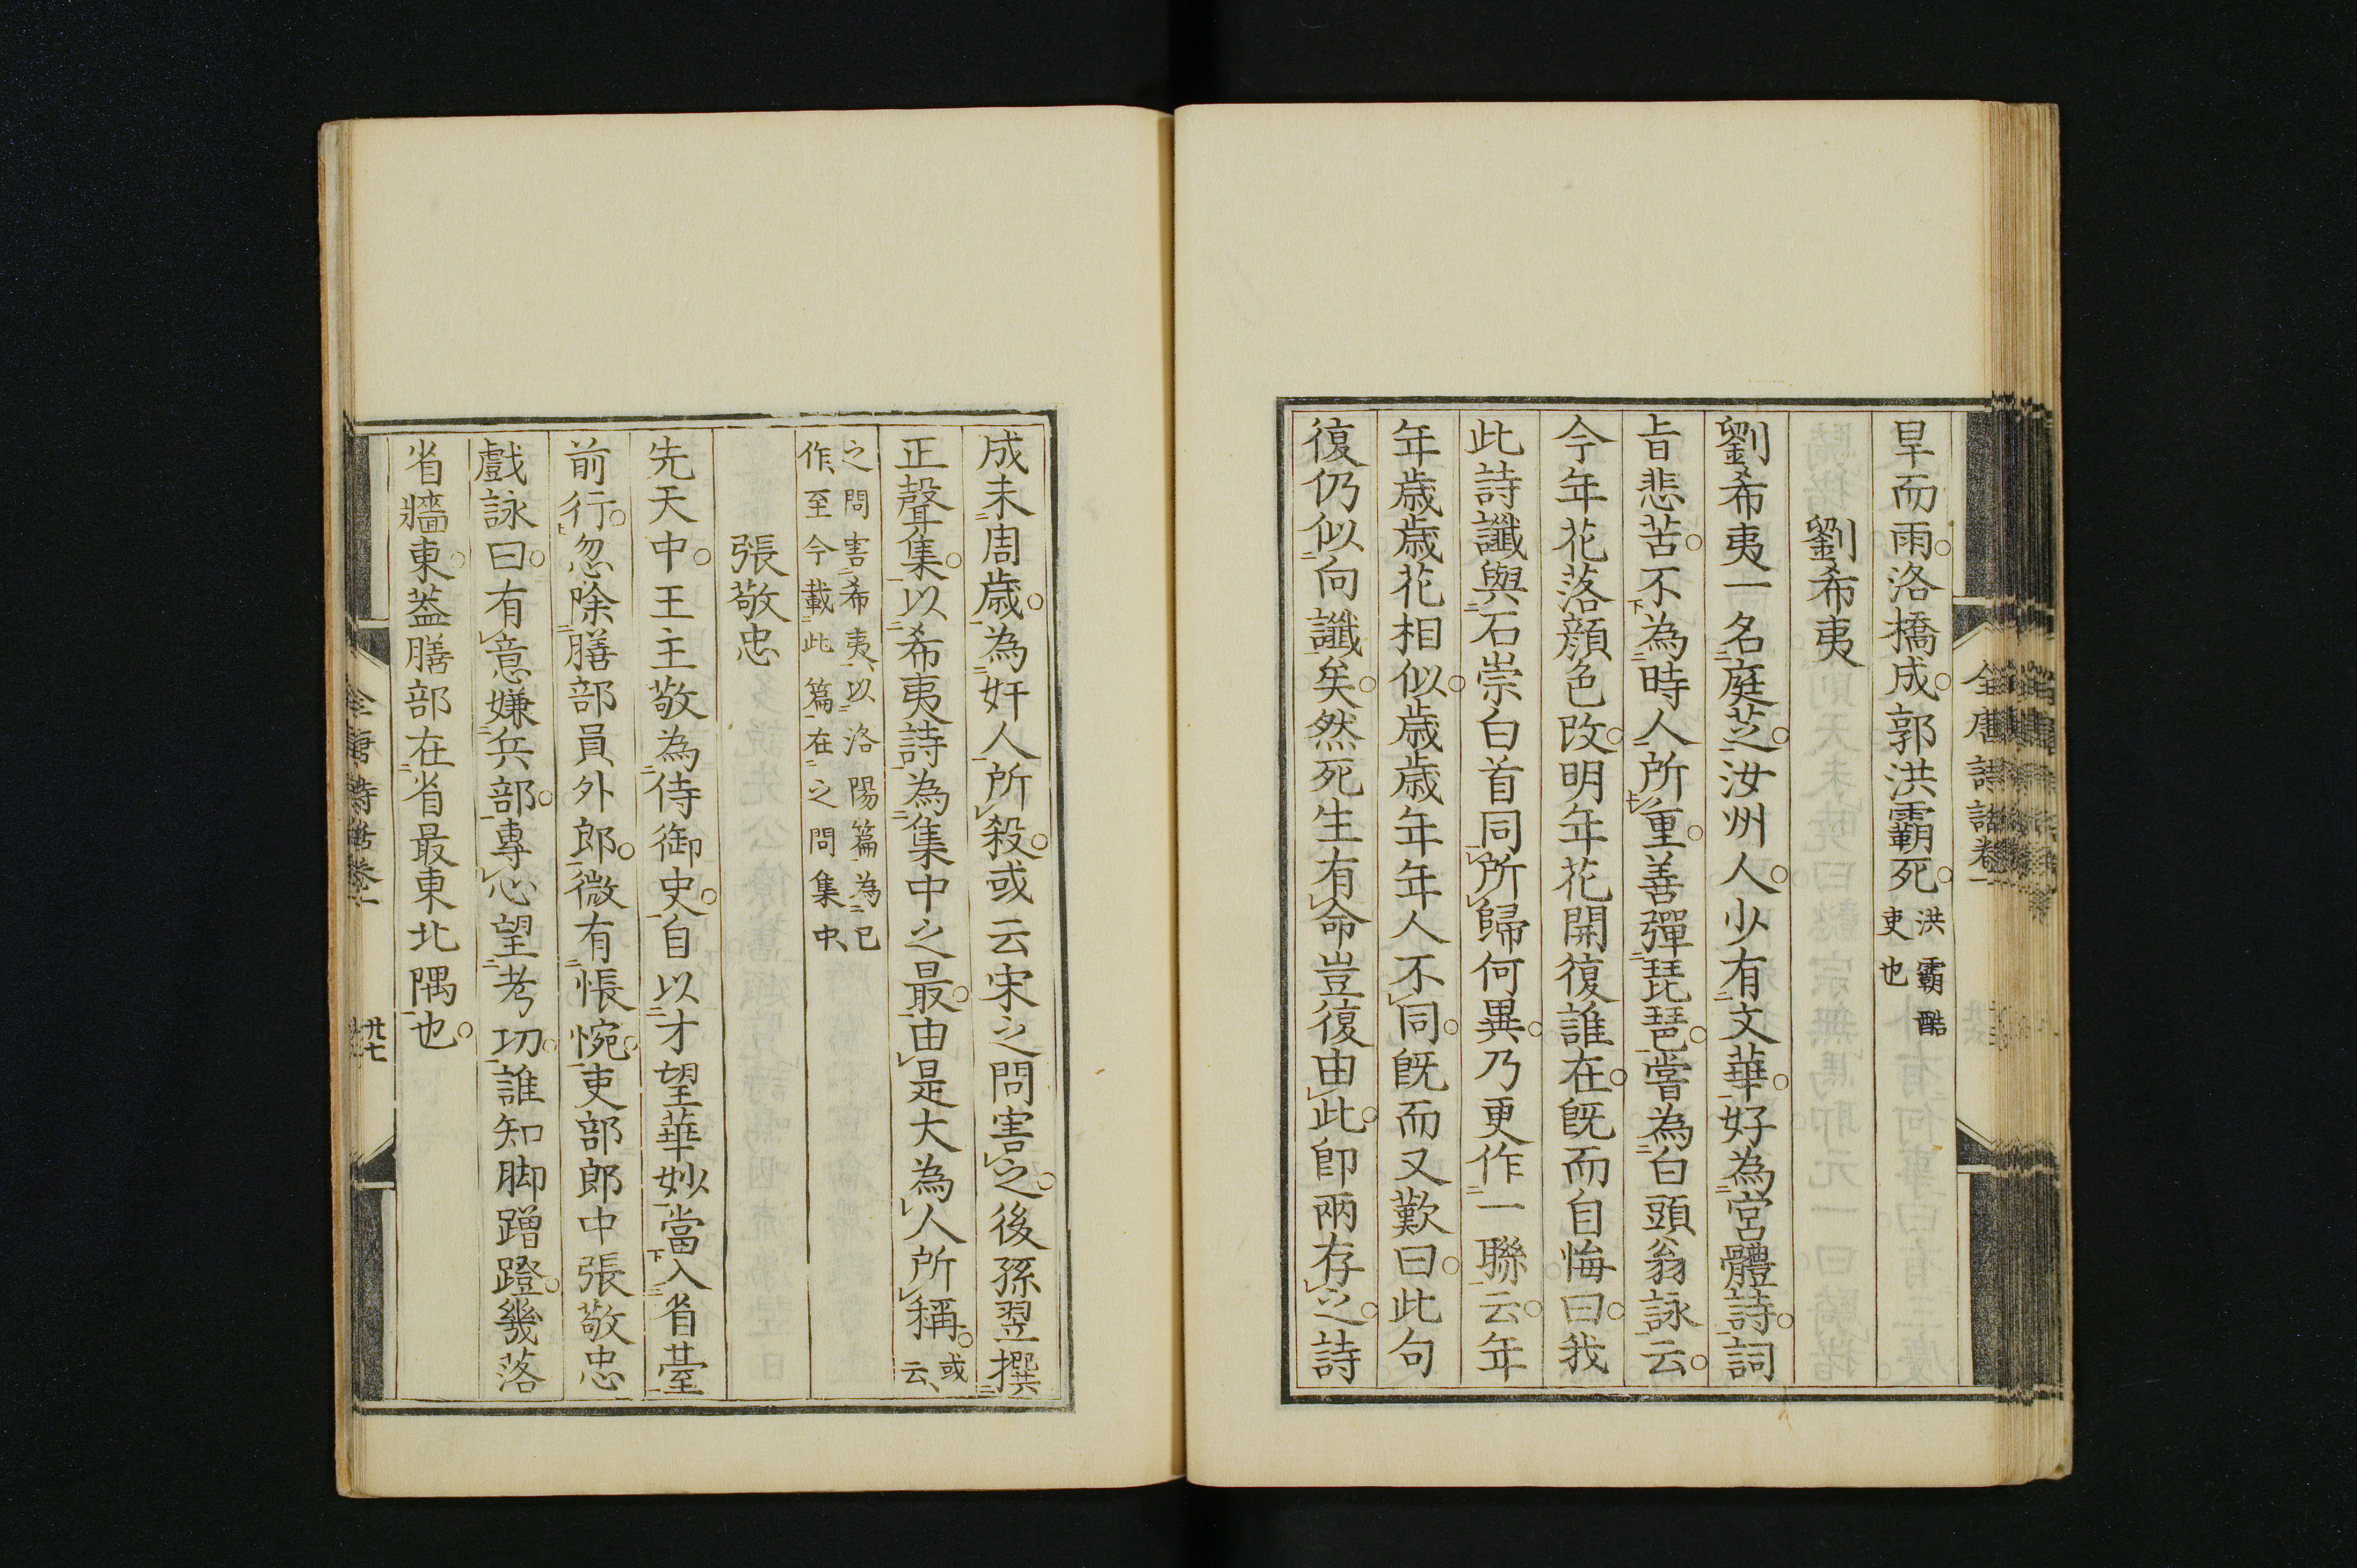 旱而雨洛橋成郭洪霸死洪霸酷吏也
劉希夷
劉希夷一名庭芝汝州人少有文華好為宮體詩詞
旨悲苦不為時人所重善彈琵琶嘗為白頭翁詠云
今年花落顔色改明年花開復誰在既而自悔曰我
此詩讖與石崇白首同所歸何異乃更作一聯云年
年歳歳花相似歳歳年年人不同既而又歎曰此句
復仍似向讖矣然死生有命豈復由此卽兩存之詩
成未周歳為奸人所殺或云宋之問害之後孫翌撰
正聲集以希夷詩為集中之最由是大為人所稱或云
之問害希夷以洛陽篇為己
作至今載此篇在之問集中
張敬忠
先天中王主敬為侍御史自以才望華妙當入省臺
前行忽除膳部員外郎微有悵惋吏部郎中張敬忠
戲詠曰有意嫌兵部專心望考功誰知脚蹭蹬幾落
省牆東葢膳部在省最東北隅也
全唐詩話卷一
廿七